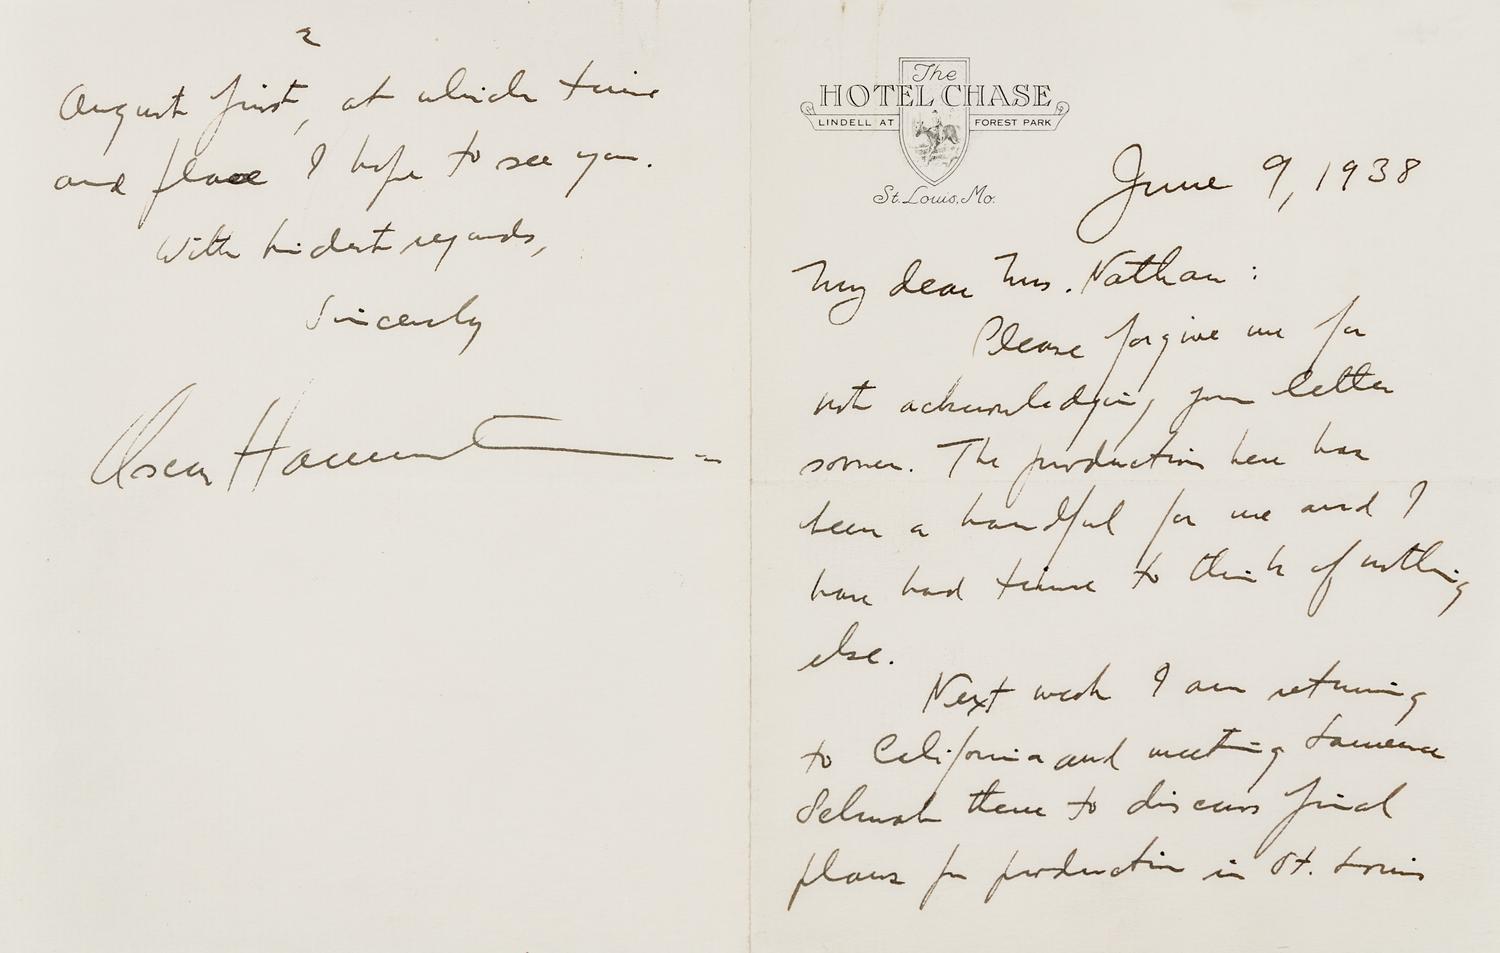 The
HOTEL CHASE
LINDELL AT FOREST PARK
St. Louis, Mo.
June 9, 1938
My dear Mrs. Nathan:
Please forgive me for
not acknowledging your letter
sooner. The production here has
been a handful for me and I
have had time to think of nothing
else.
Next week I am returning
to California and meeting Laurence
Schwab there to discuss final
plans for production in St. Louis
2
August first, at which time
and place I hope to see you.
With kindest regards,
Sincerely
Oscar Hammerstein